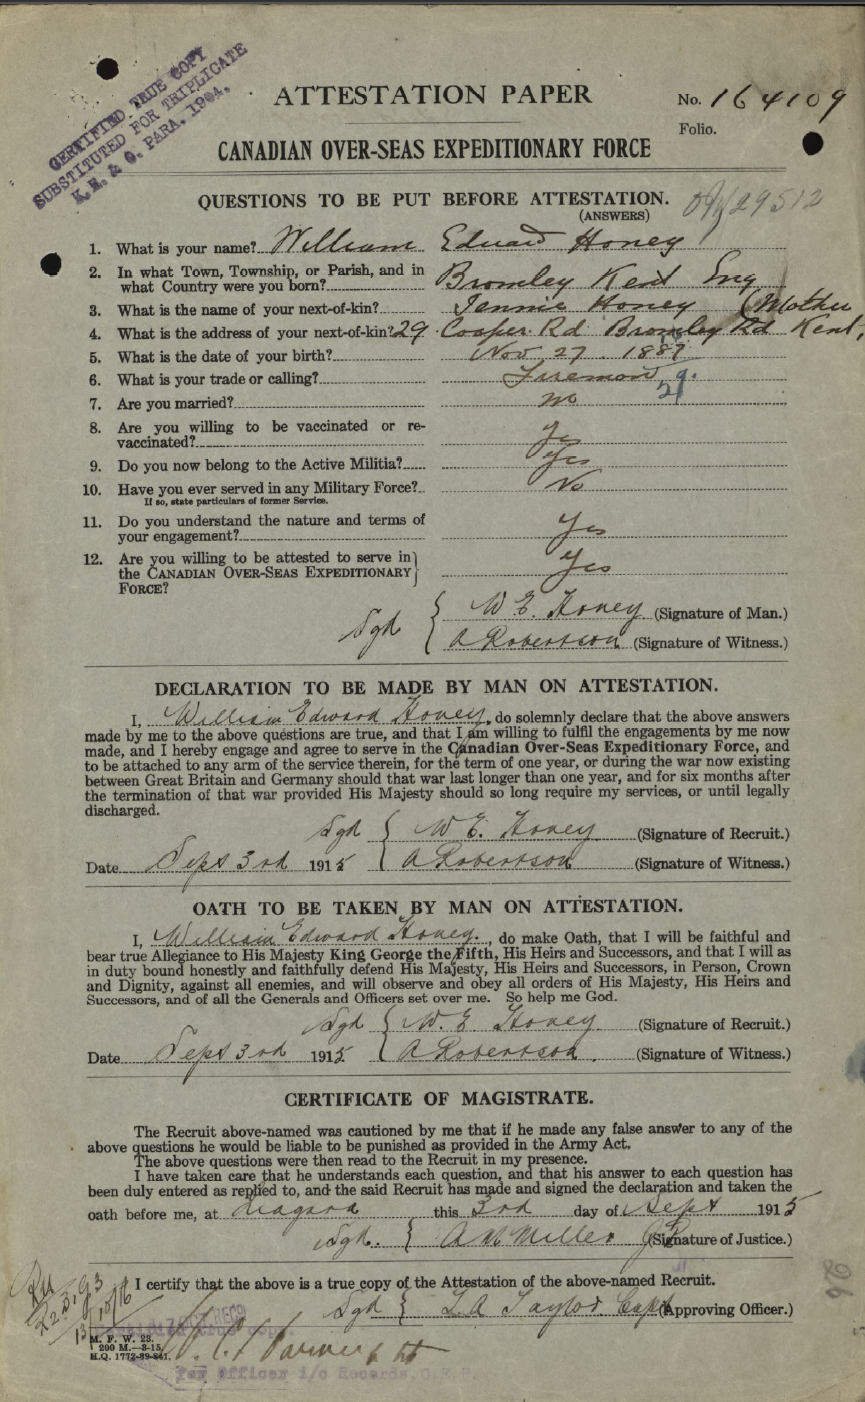 CERTIFIED TRUE COPY
SUBSTITUTED FOR TRIPLICATE
K. R. & O. PARA. 1904.
ATTESTATION PAPER
No. 164109
Folio.
CANADIAN OVER-SEAS EXPEDITIONARY FORCE
QUESTIONS TO BE PUT BEFORE ATTESTATION.
(ANSWERS)
29512
1. What is your name? William Eduard Honey
2. In what Town, Township, or Parish, and in
what Country were you born? Bromley Kent Eng
3. What is the name of your next-of-kin? Jennie Honey (Mother
4. What is the address of your next-of-kin? 29 Cooper Rd Bromley Rd Kent,
5. What is the date of your birth? Nov 27. 1887
6. What is your trade or calling? Fireman
7. Are you married? no
8. Are you willing to be vaccinated or re-
vaccinated? Yes
9. Do you now belong to the Active Militia? Yes
10. Have you ever served in any Military Force? No
If so, state particulars of former Service.
11. Do you understand the nature and terms of
your engagement? Yes
12. Are you willing to be attested to serve in
the CANADIAN OVER-SEAS EXPEDITIONARY
FORCE? Yes
W E. Honey (Signature of Man.)
Sgd A Robertson (Signature of Witness.)
DECLARATION TO BE MADE BY MAN ON ATTESTATION.
I, William Edward Honey, do solemnly declare that the above answers
made by me to the above questions are true, and that I am willing to fulfil the engagements by me now
made, and I hereby engage and agree to serve in the Canadian Over-Seas Expeditionary Force, and
to be attached to any arm of the service therein, for the term of one year, or during the war now existing
between Great Britain and Germany should that war last longer than one year, and for six months after
the termination of that war provided His Majesty should so long require my services, or until legally
discharged.
Sgd W E. Honey (Signature of Recruit.)
Date Sept 3rd 1915 A Robertson (Signature of Witness.)
OATH TO BE TAKEN BY MAN ON ATTESTATION.
I, William Edward Honey, do make Oath, that I will be faithful and
bear true Allegiance to His Majesty King George the Fifth, His Heirs and Successors, and that I will as
in duty bound honestly and faithfully defend His Majesty, His Heirs and Successors, in Person, Crown
and Dignity, against all enemies, and will observe and obey all orders of His Majesty, His Heirs and
Successors, and of all the Generals and Officers set over me. So help me God.
Sgd W. E Honey (Signature of Recruit.)
Date Sept 3rd 1915 A Robertson (Signature of Witness.)
CERTIFICATE OF MAGISTRATE.
The Recruit above-named was cautioned by me that if he made any false answer to any of the
above questions he would be liable to be punished as provided in the Army Act.
The above questions were then read to the Recruit in my presence.
I have taken care that he understands each question, and that his answer to each question has
been duly entered as replied to, and the said Recruit has made and signed the declaration and taken the
oath before me, at Niagara this 3rd day of Sept 1915
Sgd. A W Miller JP (Signature of Justice.)
I certify that the above is a true copy of the Attestation of the above-named Recruit.
Sgd L A Taylor Capt (Approving Officer.)
M. F. W. 23.
200 M.—8-15.
H.Q. 1772-39-841.
for Officer i/c Records, C.E.F.